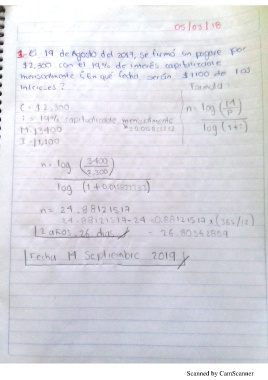 05/09/18
1.- El 19 de Agosto del 2017, se firmó un pagare por
$2,300 con el 19% de interés capitalizable
mensualmente ¿En que fecha serán $1100 de los
intereses?
Formula
C = $2,300
I = 19% capitalizable mensualmente
M = 3400
I = $1,100
n = log (M/P)
log (1+i)
n = log (3400/2,300)
log (1+0.01583333)
n = 24.88121517
24.88121517-24 = 0.88121517 x (365/12)
2 años, 26 dias
= 26.80362809
Fecha 14 Septiembre 2019
Scanned by CamScanner